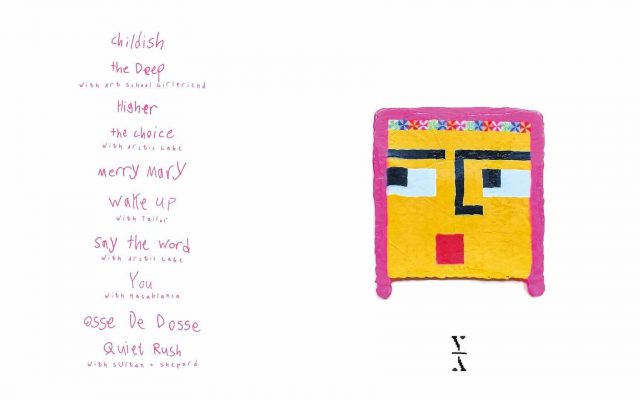 childish
the Deep
with Art School Girlfriend
Higher
the choice
with Arctic Lake
merry Mary
wake up
with Tailor
Say the word
with Arctic Lake
You
with Kasablanca
Osse De Dosse
Quiet Rush
with Sultan + Shepard